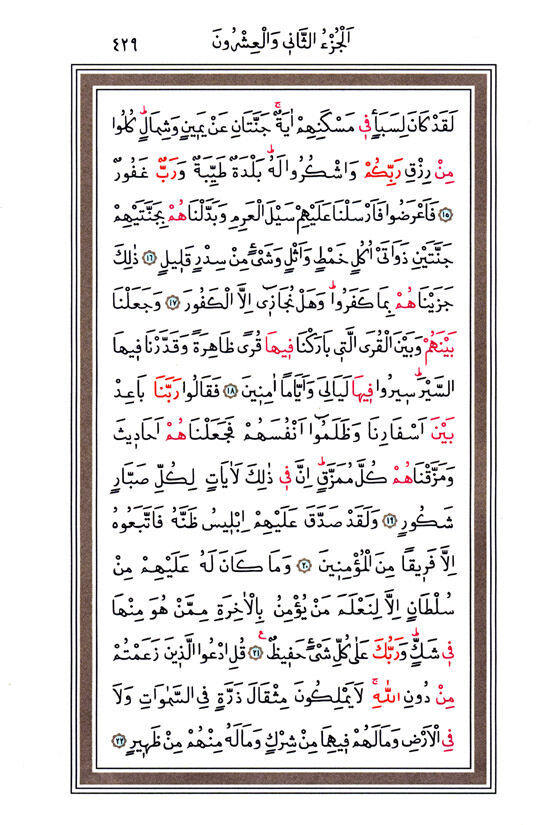 اَلْجُزْءُ الثَّانِي وَالْعِشْرُونَ ٤٢٩
لَقَدْ كَانَ لِسَبَأٍ فِي مَسْكَنِهِمْ اٰيَةٌۚ جَنَّتَانِ عَنْ يَمِينٍ وَشِمَالٍۜ كُلُوا
مِنْ رِزْقِ رَبِّكُمْ وَاشْكُرُوا لَهُۜ بَلْدَةٌ طَيِّبَةٌ وَرَبٌّ غَفُورٌ
﴿١٥﴾ فَاَعْرَضُوا فَاَرْسَلْنَا عَلَيْهِمْ سَيْلَ الْعَرِمِ وَبَدَّلْنَاهُمْ بِجَنَّتَيْهِمْ
جَنَّتَيْنِ ذَوَاتَيْ اُكُلٍ خَمْطٍ وَاَثْلٍ وَشَيْءٍ مِنْ سِدْرٍ قَلِيلٍ ﴿١٦﴾ ذٰلِكَ
جَزَيْنَاهُمْ بِمَا كَفَرُواۜ وَهَلْ نُجَازِي اِلَّا الْكَفُورَ ﴿١٧﴾ وَجَعَلْنَا
بَيْنَهُمْ وَبَيْنَ الْقُرَى الَّتِي بَارَكْنَا فِيهَا قُرًى ظَاهِرَةً وَقَدَّرْنَا فِيهَا
السَّيْرَۜ سِيرُوا فِيهَا لَيَالِيَ وَاَيَّامًا اٰمِنِينَ ﴿١٨﴾ فَقَالُوا رَبَّنَا بَاعِدْ
بَيْنَ اَسْفَارِنَا وَظَلَمُٓوا اَنْفُسَهُمْ فَجَعَلْنَاهُمْ اَحَادِيثَ
وَمَزَّقْنَاهُمْ كُلَّ مُمَزَّقٍۜ اِنَّ فِي ذٰلِكَ لَاٰيَاتٍ لِكُلِّ صَبَّارٍ
شَكُورٍ ﴿١٩﴾ وَلَقَدْ صَدَّقَ عَلَيْهِمْ اِبْلِيسُ ظَنَّهُ فَاتَّبَعُوهُ
اِلَّا فَرِيقًا مِنَ الْمُؤْمِنِينَ ﴿٢٠﴾ وَمَا كَانَ لَهُ عَلَيْهِمْ مِنْ
سُلْطَانٍ اِلَّا لِنَعْلَمَ مَنْ يُؤْمِنُ بِالْاٰخِرَةِ مِمَّنْ هُوَ مِنْهَا
فِي شَكٍّۜ وَرَبُّكَ عَلٰى كُلِّ شَيْءٍ حَفِيظٌ۟ ﴿٢١﴾ قُلِ ادْعُوا الَّذِينَ زَعَمْتُمْ
مِنْ دُونِ اللّٰهِۚ لَا يَمْلِكُونَ مِثْقَالَ ذَرَّةٍ فِي السَّمٰوَاتِ وَلَا
فِي الْاَرْضِ وَمَا لَهُمْ فِيهِمَا مِنْ شِرْكٍ وَمَا لَهُ مِنْهُمْ مِنْ ظَهِيرٍ ﴿٢٢﴾